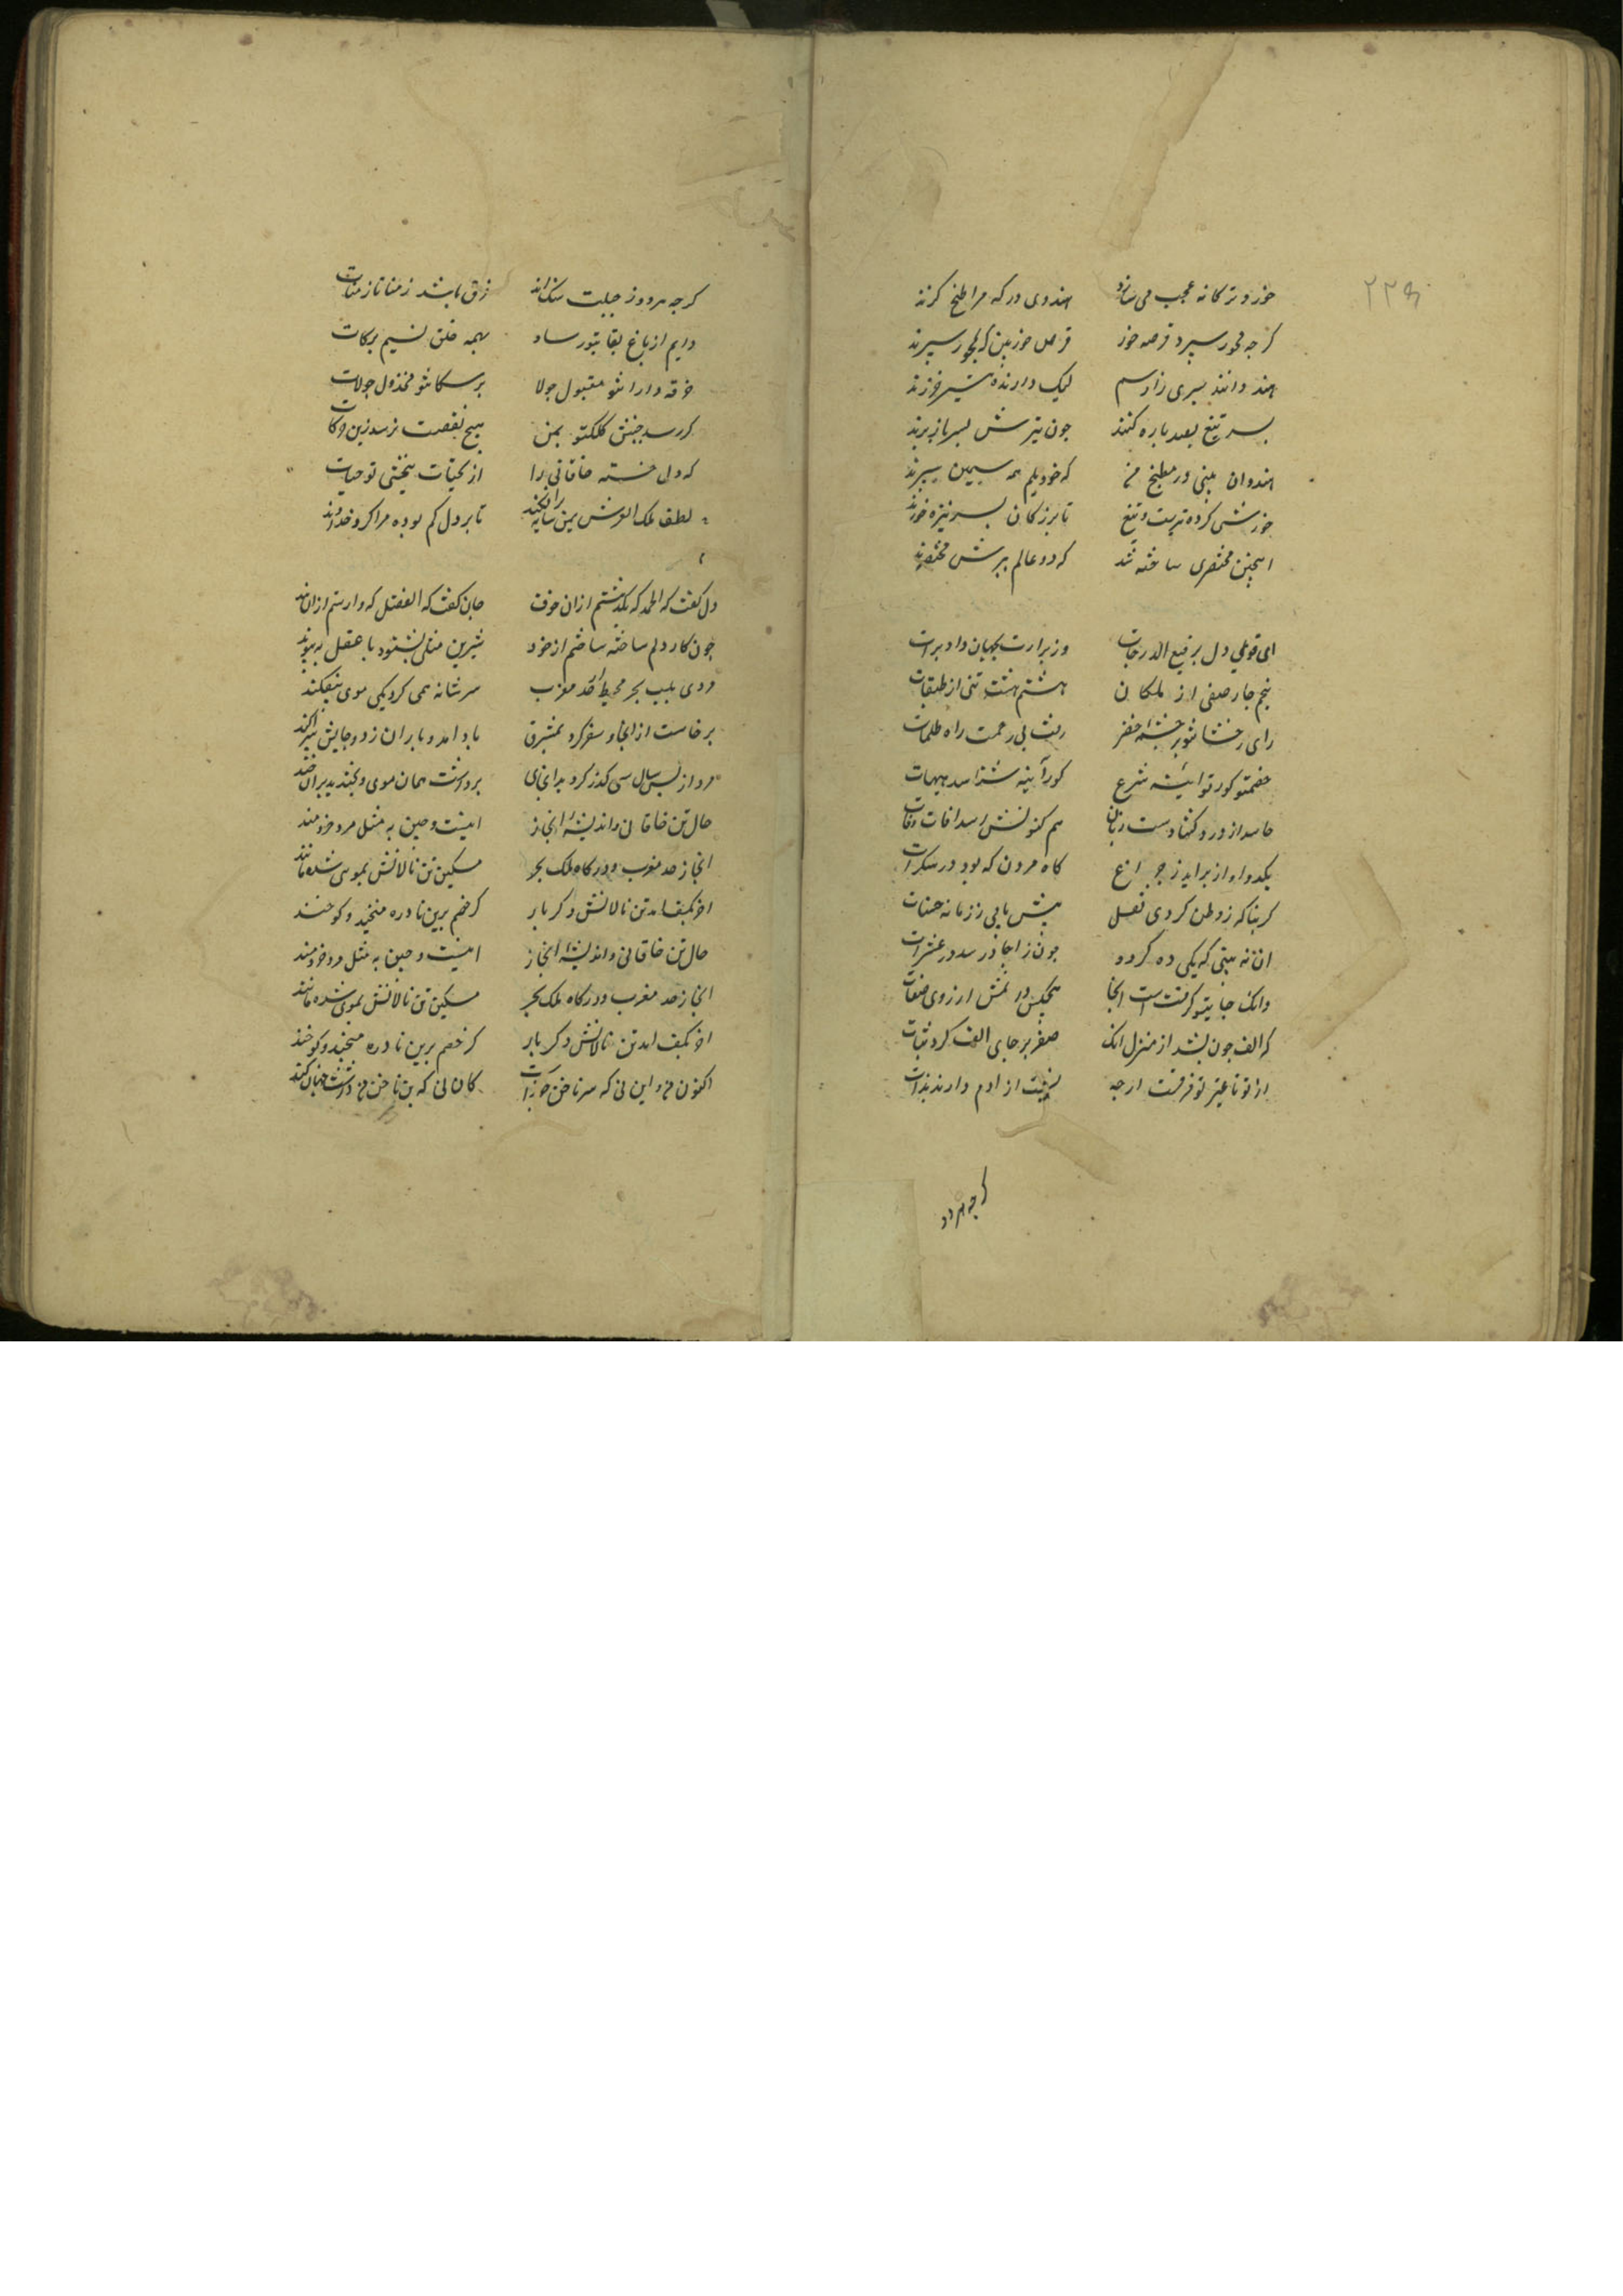 ۲۲۹
خورد ترکانه عجب می سازد هندوی درکه مرا طبخ کرند
کرجه محور سپرد قرصه خور قرص خور بین که محور سپرند
هند دانند سری زادسم لیک دارنده شیر خورند
بسر تیغ بصد باره کنند جون تیرش بسر باز برند
هندوان بینی در مطبخ من که خو دیلم همه سیمین سپرند
خورشی کرده تربیت و تیغ تا بزرکان بسر نیزه خورند
اینجنین مختصری ساخته شد که دو عالم ببرش مختصرند
ای قوی دل برفیع الدرجات وز برارت بجهان داد برات
پنجم جار صفی از ملکان هشتم هشت تنی از طبقات
رای رخشا نتو بر جشمه خضر رفت بی زحمت راه ظلمات
خصمتو کور تو آیینه شرع کور آیینه شناسد هیهات
حاسد از درد کشاد دست زبان هم کنونش رسد آفات وفات
یکدو آواز براید ز جراغ کاه مردن که بود در سکرات
کر بناکه زوطن کردی نقل بیش یابی ز زمانه حسنات
ان نه بینی که یکی ده کردد جون ز آحاد رسد در عشرات
وانک جایتو کرفتست انجا هیجکس در نمش ارزوی صفات
که الف جون بشد از منزل انک صفر بر جای الف کرد ثبات
از تو تا غیر تو فرقست ارجه نسبت از ادم دارند بذات
کرجه هردو
کرجه هردو ز جبلت سنک اند فرق باشد ز منا تا ز منات
دایم از باغ بقا بتو رساد بهمه خلق نسیم برکات
خرقه دارا نتو مقبول جولا بر سکانتو مخذول جولات
کر رسد جنبش کلکتو بمن هیچ نقصت نرسد زین حرکات
که دل خسته خاقانی را از تحیات تبخشی تو حیات
لطف ملک العرش بمن سایه برافکند تا بر دل کم بوده مرا کرد خداوند
دل کفت که الحمد که بگذشتم ازان خوف جان کفت که الفضل که وارستم ازان بند
جون کار دلم ساخته شد ساختم از خود شیرین مثلی بشنود با عقل بپیوند
مردی بلب بحر محیط از حد مغرب سر شانه همی کرد یکی موی بیفکند
برخاست از انجا و سفر کرد بمشرق باد امد و باران زد و جایش بپراکند
مرد از پس سال سی کذر کرد بر انجای برداشت همان موی و بخندید بر ان خند
حال تن خاقانی و اندیشه انجاز اینست و جنین به مثل مرد خردمند
انجاز حد مغرب و درکاه ملک بحر مسکین تن نالانش بموی شده مانند
اخر بکف امد تن نالانش دکر بار کر خصم برین نادره میخندد کو خند
حال تن خاقانی و اندیشه انجاز اینست و جنین به مثل مرد خردمند
انجاز حد مغرب و درکاه ملک بحر مسکین تن نالانش بموی شده مانند
اخر بکف امد تن نالانش دکر بار کر خصم برین نادره میخندد کو خند
اکنون من و این نی که سر ناخن حوراست کان نی که بن ناخن من داشت جهان کند